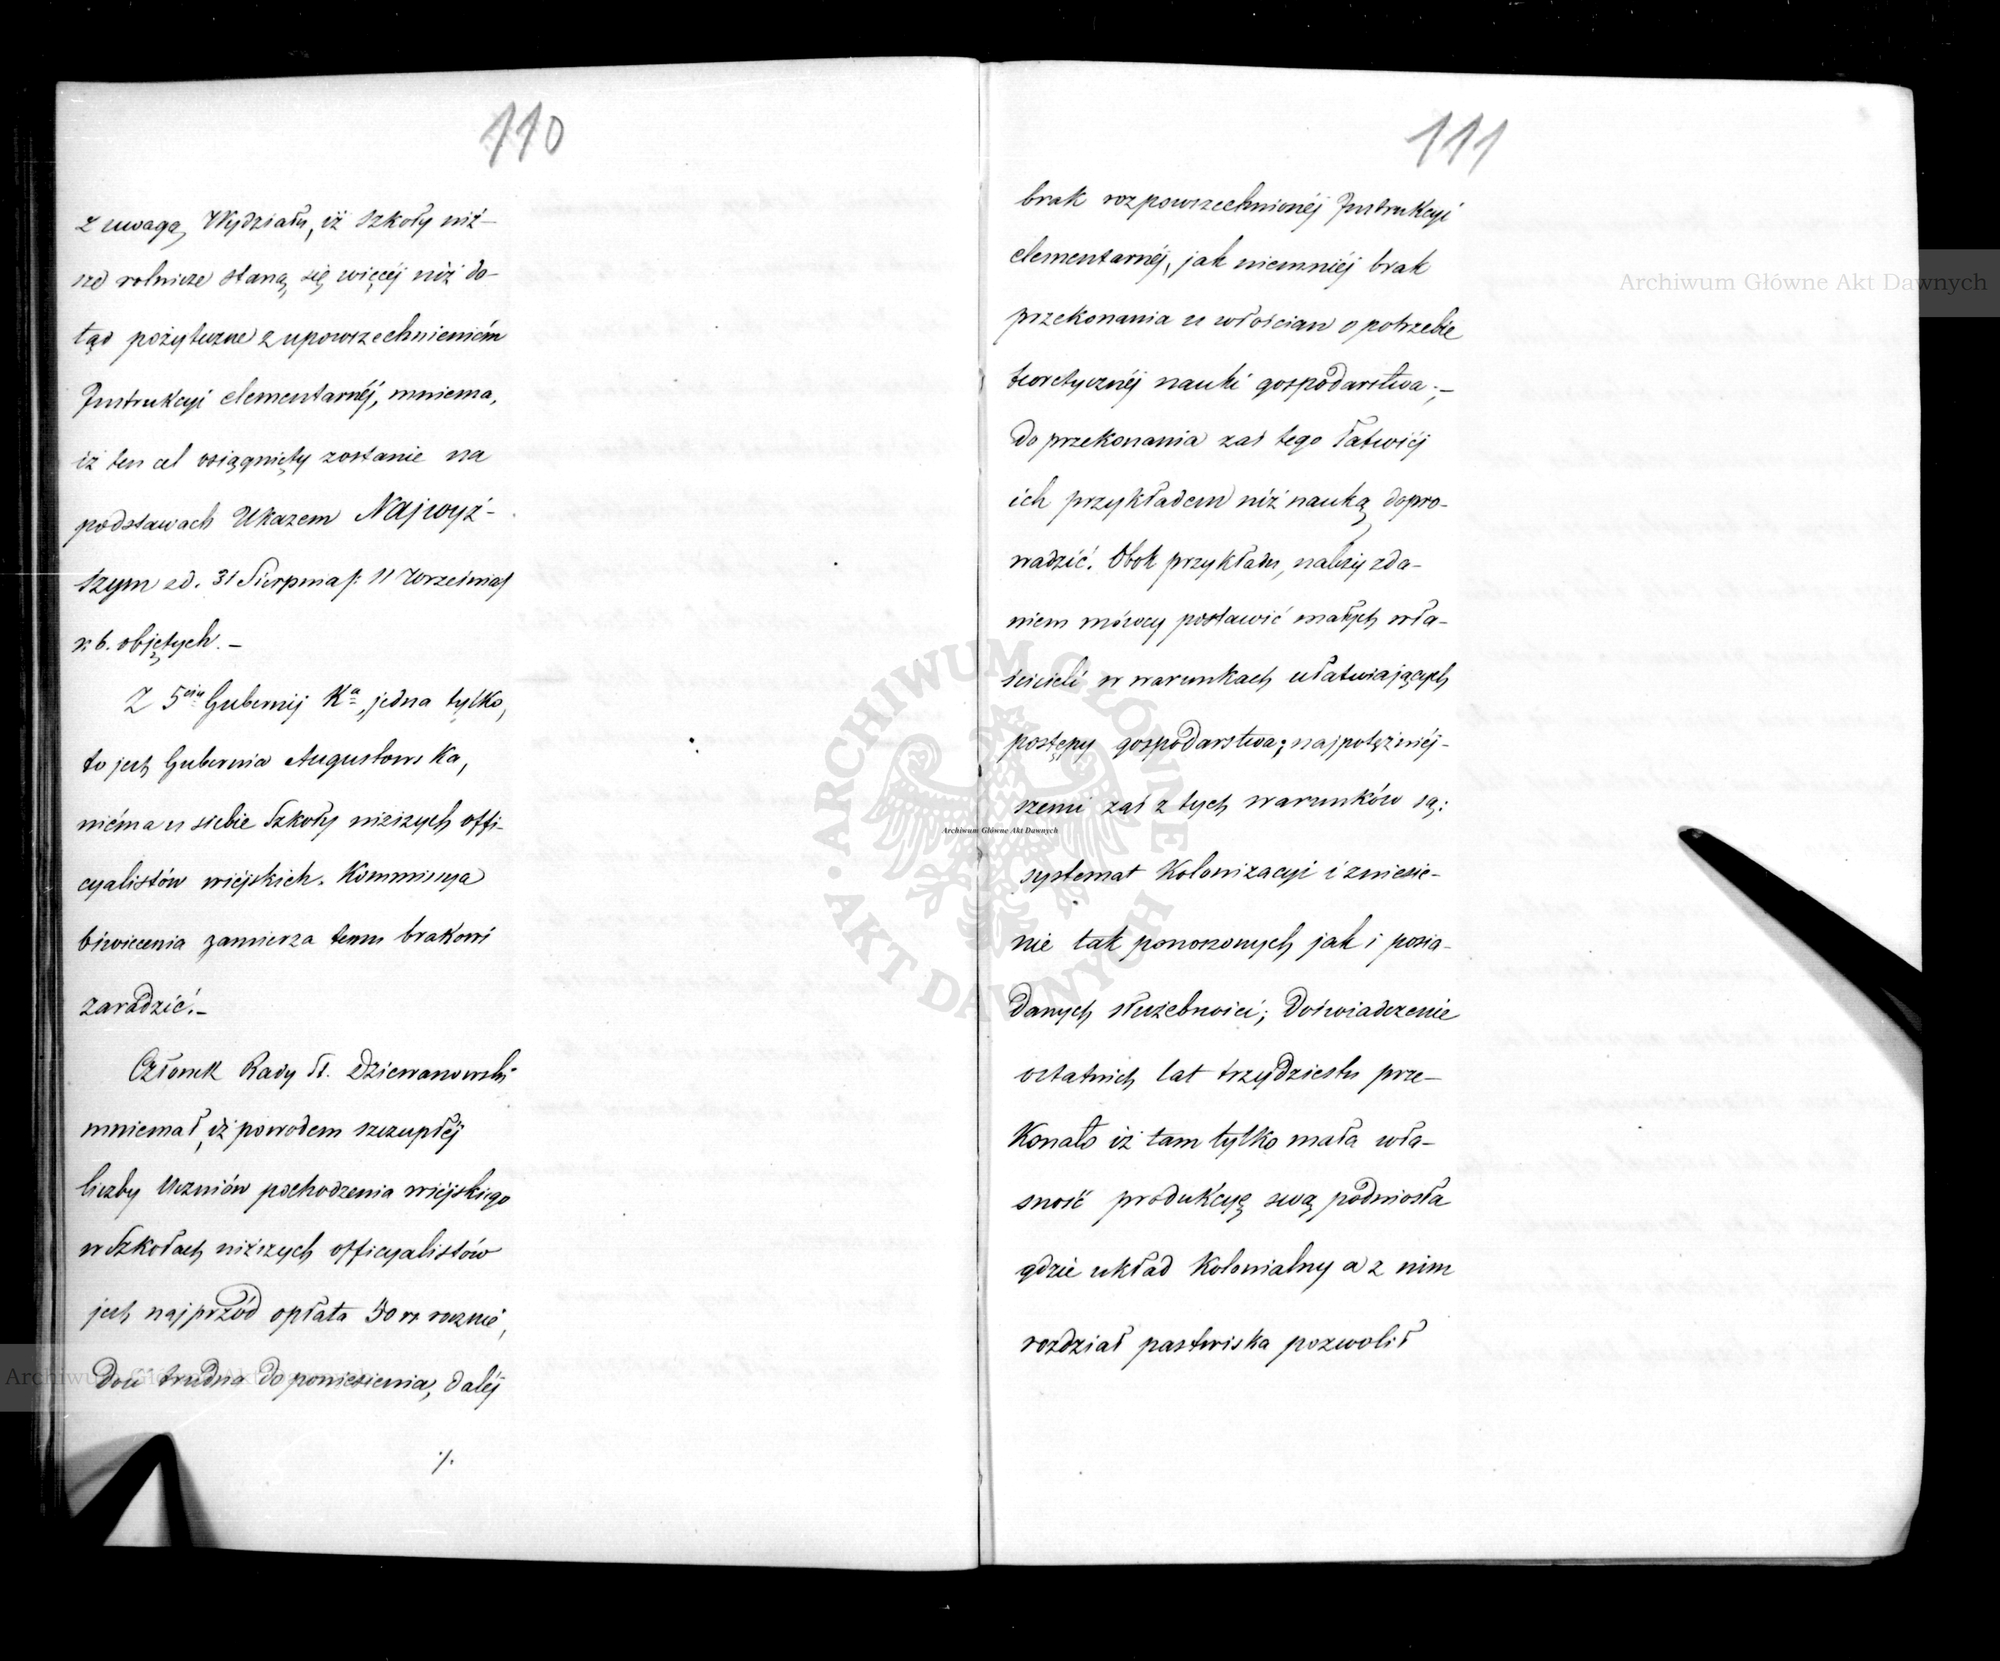 110
z uwagą Wydziału, iż szkoły niż-
sze rolnicze staną się więcéj niż do-
tąd pożyteczne z upowszechnieniém
Instrukcyi elementarnéj, mniema,
iż ten cel osiągnięty zostanie na
podstawach Ukazem Najwyż-
szym zd. 31 Sierpnia /: 11 Września/
r: b. objętych. —
Z 5ciu Gubernij Ka, jedna tylko,
to jest Gubernia Augustowska,
niéma u siebie Szkoły niższych offi-
cyalistów wiéjskich. Kommissya
Oświecenia zamierza temu brakowi
zaradzić. —
Członek Rady St. Dziewanowski
mniemał, iż powodem szczupłéj
liczby Uczniów pochodzenia wiéjskiego
w Szkołach niższych officyalistów
jest najprzód opłata 50 rs rocznie,
dość trudna do poniesienia, daléj
./.
111
brak rozpowszechnionéj Instrukcyi
elementarnéj, jak niemniéj brak
przekonania u włościan o potrzebie
teoretycznéj nauki gospodarstwa; —
do przekonania zaś tego łatwiéj
ich przykładem niż nauką dopro-
wadzić. Obok przykładu, należy zda-
niem mówcy postawić małych wła-
ścicieli w warunkach ułatwiających
postępy gospodarstwa; najpotężniéj-
szemi zaś z tych warunków są:
systemat Kolonizacyi i zniesie-
nie tak ponoszonych jak i posia-
danych służebności; Doświadczenie
ostatnich lat trzydziestu prze-
konało iż tam tylko mała wła-
sność produkcyę swą podniosła
gdzie układ Kolonialny a z nim
rozdział pastwiska pozwolił
Archiwum Główne Akt Dawnych
Archiwum Główne Akt Dawnych
Archiwum Główne Akt Dawnych
ARCHIWUM GŁÓWNE
AKT DAWNYCH